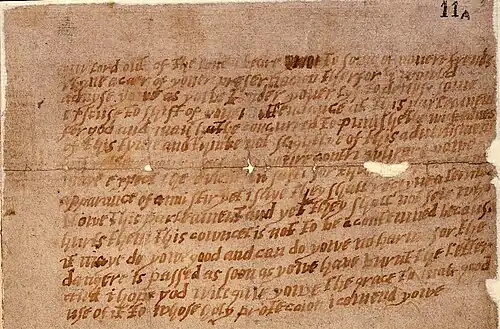 11A
my lord out of the love i beare to some of youere frends
i have a caer of youer preservacion therfor i would
advyse yowe as yowe tender youer lyf to devys some
excuse to shift of youer attendance at this parleament
for god and man hath concurred to punishe the wickednes
of this tyme and thinke not slightlye of this advertisment
youre contri wheare yowe
maye expect the event in safti for
apparance of anni stir yet i saye they shall receyve a terrible
blowe this parleament and yet they shall not seie who
hurts them this cowncel is not to be contemned because
it maye do yowe good and can do yowe no harme for the
dangere is passed as soon as yowe have burnt the letter
and i hope god will give yowe the grace to mak good
use of it to whose holy proteccion i comend yowe